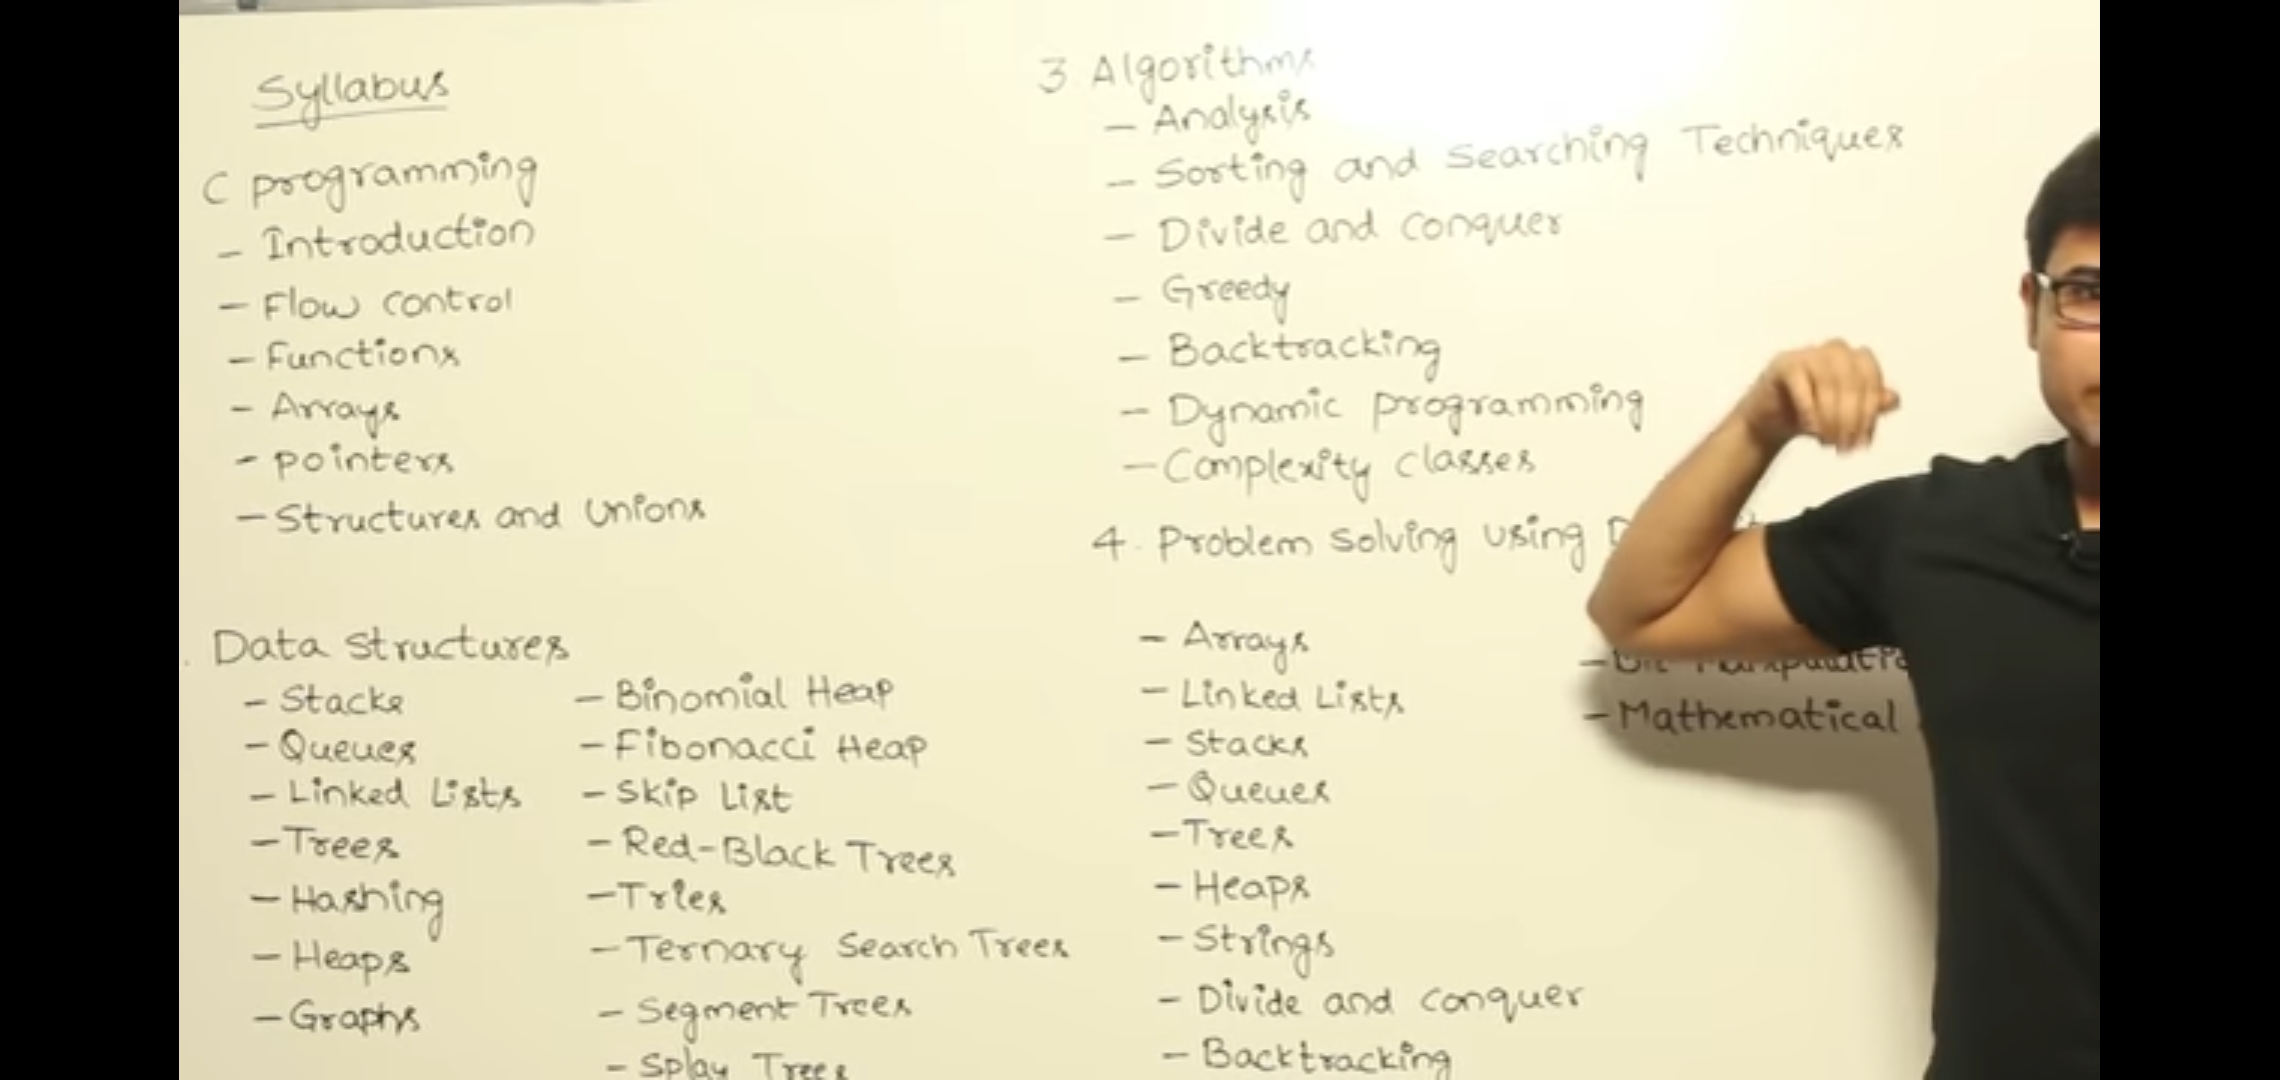 Syllabus
C programming
- Introduction
- Flow control
- Functions
- Arrays
- pointers
- Structures and Unions
. Data structures
- Stacks
- Queues
- Linked Lists
- Trees
- Hashing
- Heaps
- Graphs
- Binomial Heap
- Fibonacci Heap
- Skip List
- Red-Black Trees
- Tries
- Ternary Search Trees
- Segment Trees
- Splay Trees
3. Algorithms
- Analysis
- Sorting and Searching Techniques
- Divide and conquer
- Greedy
- Backtracking
- Dynamic programming
- Complexity classes
4. Problem solving using
- Arrays
- Linked Lists
- Stacks
- Queues
- Trees
- Heaps
- Strings
- Divide and conquer
- Backtracking
- Bit
- Mathematical